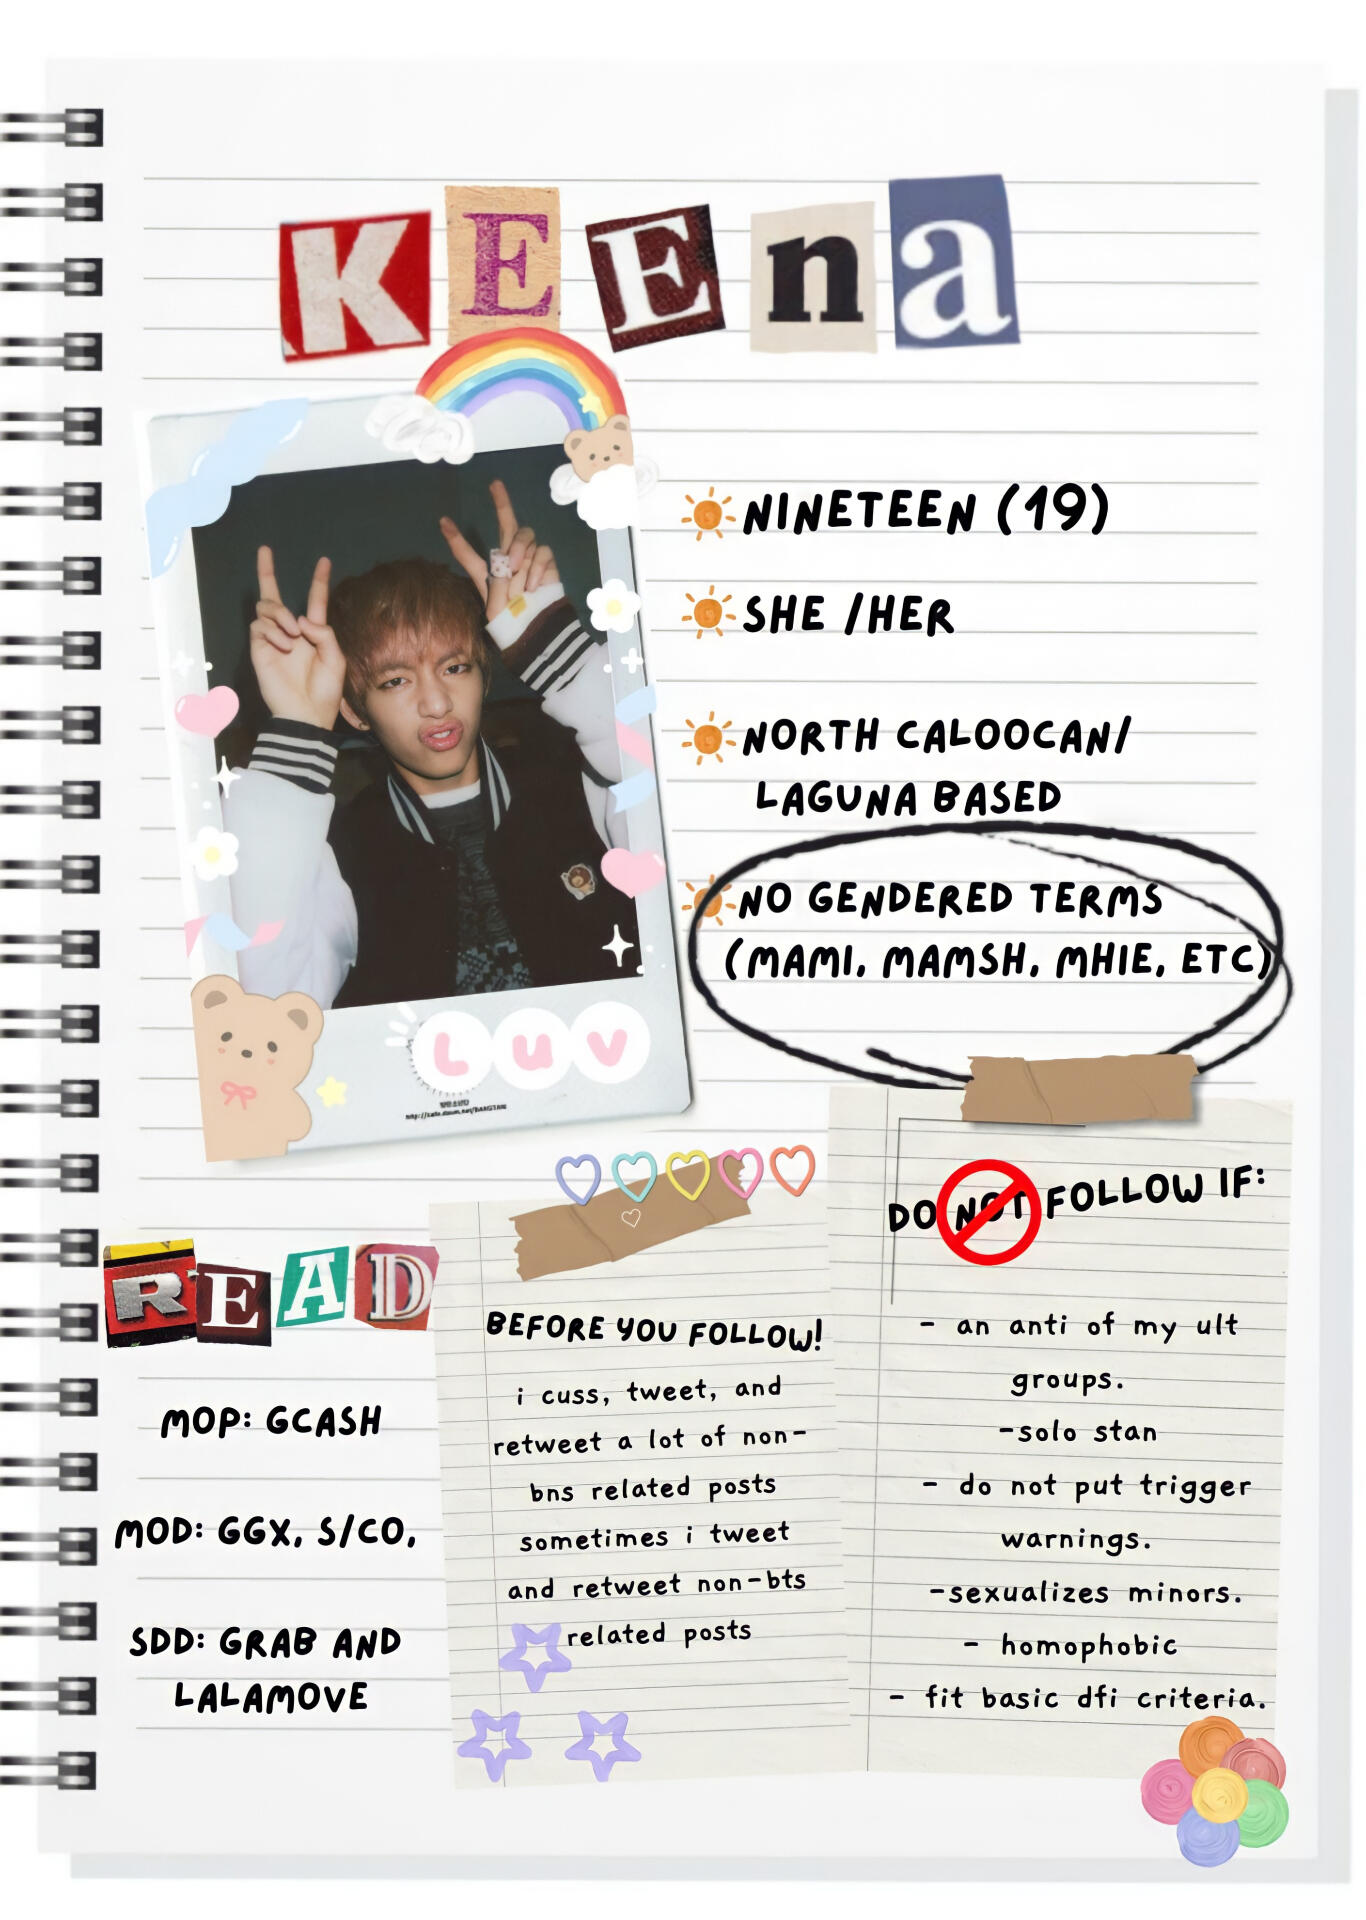 KEEna
NINETEEN (19)
SHE /HER
NORTH CALOOCAN/
LAGUNA BASED
NO GENDERED TERMS
(MAMI, MAMSH, MHIE, ETC)
LUV
방탄소년단
http://cafe.daum.net/BANGTAN
READ
MOP: GCASH
MOD: GGX, S/CO,
SDD: GRAB AND
LALAMOVE
BEFORE YOU FOLLOW!
i cuss, tweet, and
retweet a lot of non-
bns related posts
sometimes i tweet
and retweet non-bts
related posts
DO NOT FOLLOW IF:
- an anti of my ult
groups.
-solo stan
- do not put trigger
warnings.
-sexualizes minors.
- homophobic
- fit basic dfi criteria.